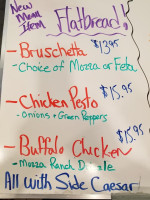 New Menu Item Flatbread!!
- Bruschetta $13.95
- Choice of Mozza or Feta
- Chicken Pesto $15.95
- Onions + Green Peppers
- Buffalo Chicken $15.95
- Mozza Ranch
All with Side Caesar